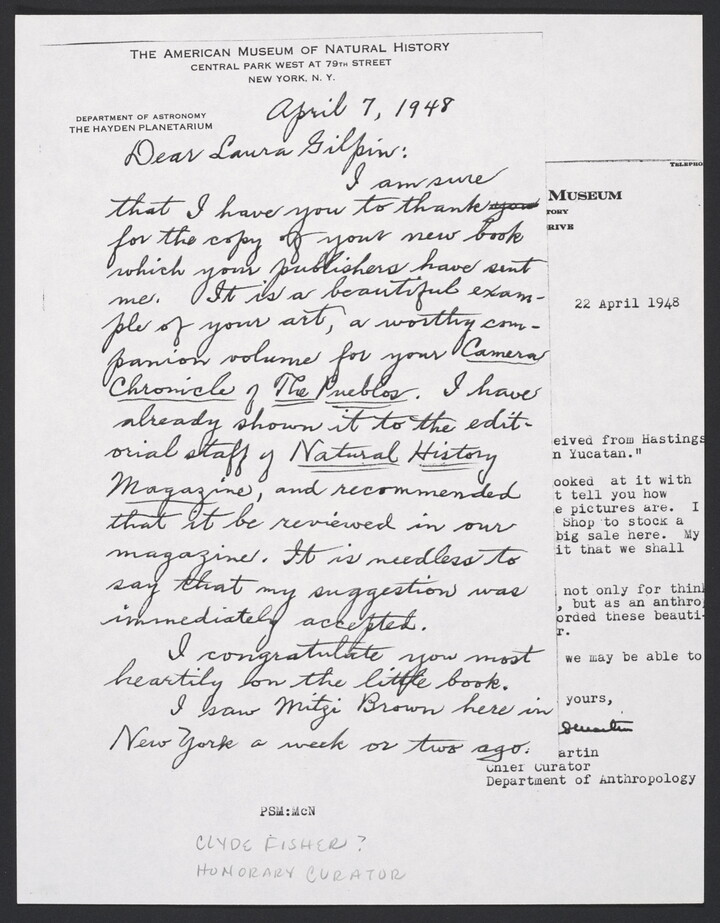 THE AMERICAN MUSEUM OF NATURAL HISTORY
CENTRAL PARK WEST AT 79TH STREET
NEW YORK, N. Y.
DEPARTMENT OF ASTRONOMY
THE HAYDEN PLANETARIUM
April 7, 1948
Dear Laura Gilpin:
I am sure
that I have you to thank you
for the copy of your new book
which your publishers have sent
me. It is a beautiful exam-
ple of your art, a worthy com-
panion volume for your Camera
Chronicle of The Pueblos. I have
already shown it to the edit-
orial staff of Natural History
Magazine, and recommended
that it be reviewed in our
magazine. It is needless to
say that my suggestion was
immediately accepted.
I congratulate you most
heartily on the little book.
I saw Mitzi Brown here in
New York a week or two ago.
TELEPHO
MUSEUM
TORY
RIVE
22 April 1948
eived from Hastings
n Yucatan."
ooked at it with
t tell you how
e pictures are. I
Shop to stock a
big sale here. My
it that we shall
not only for think
, but as an anthro
orded these beauti-
r.
we may be able to
yours,
artin
Chief Curator
Department of Anthropology
PSM:McN
CLYDE FISHER?
HONORARY CURATOR